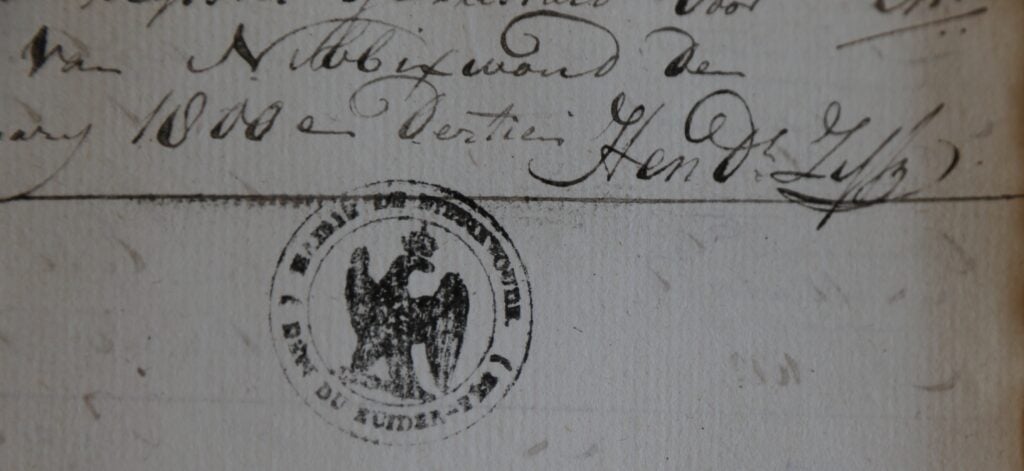 voor
van Nibbixwoud den
ary 1800 en Dertien Hend.k
MAIRIE DE NIBBIXWOUDE.
( DEP. DU ZUIDER-ZEE )